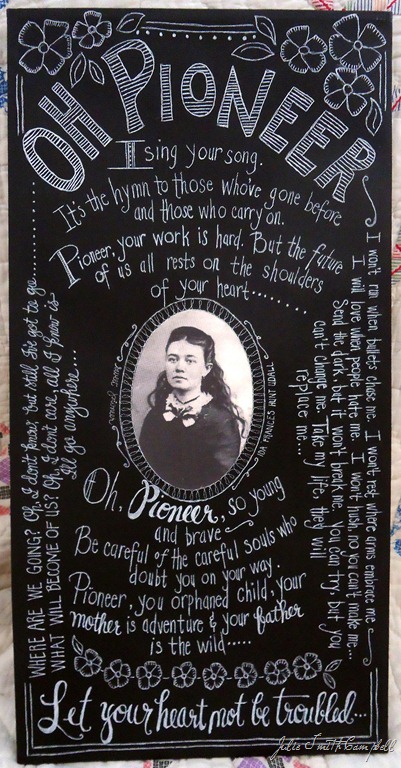 OH PIONEER
I sing your song.
It's the hymn to those who've gone before
and those who carry on.
Pioneer, your work is hard. But the future
of us all rests on the shoulders
of your heart........
I won't run when bullets chase me. I won't rest where arms embrace me
I will love when people hate me. I won't hush, no you can't make me...
Send the dark, but it won't break me. You can try, but you
can't change me. Take my life, they will
replace me...
IDA FRANCES HUNT UDALL
Oh, Pioneer, so young
and brave
Be careful of the careful souls who
doubt you on your way.
Pioneer, you orphaned child, your
mother is adventure & your father
is the wild.....
WHERE ARE WE GOING? Oh, I don't know, but still I've got to go.......
WHAT WILL BECOME OF US? Oh, I don't care, all I know is
I'll go anywhere...
Let your heart not be troubled...
Julie Smith Campbell